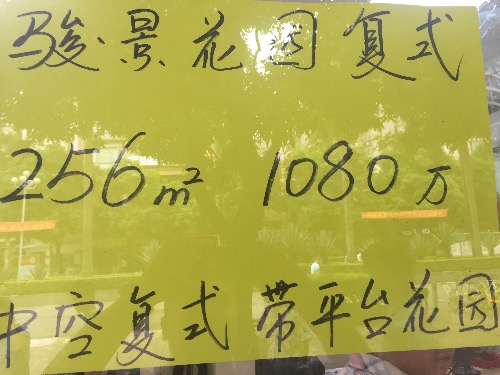 骏景花园复式
256m² 1080万
中空复式带平台花园